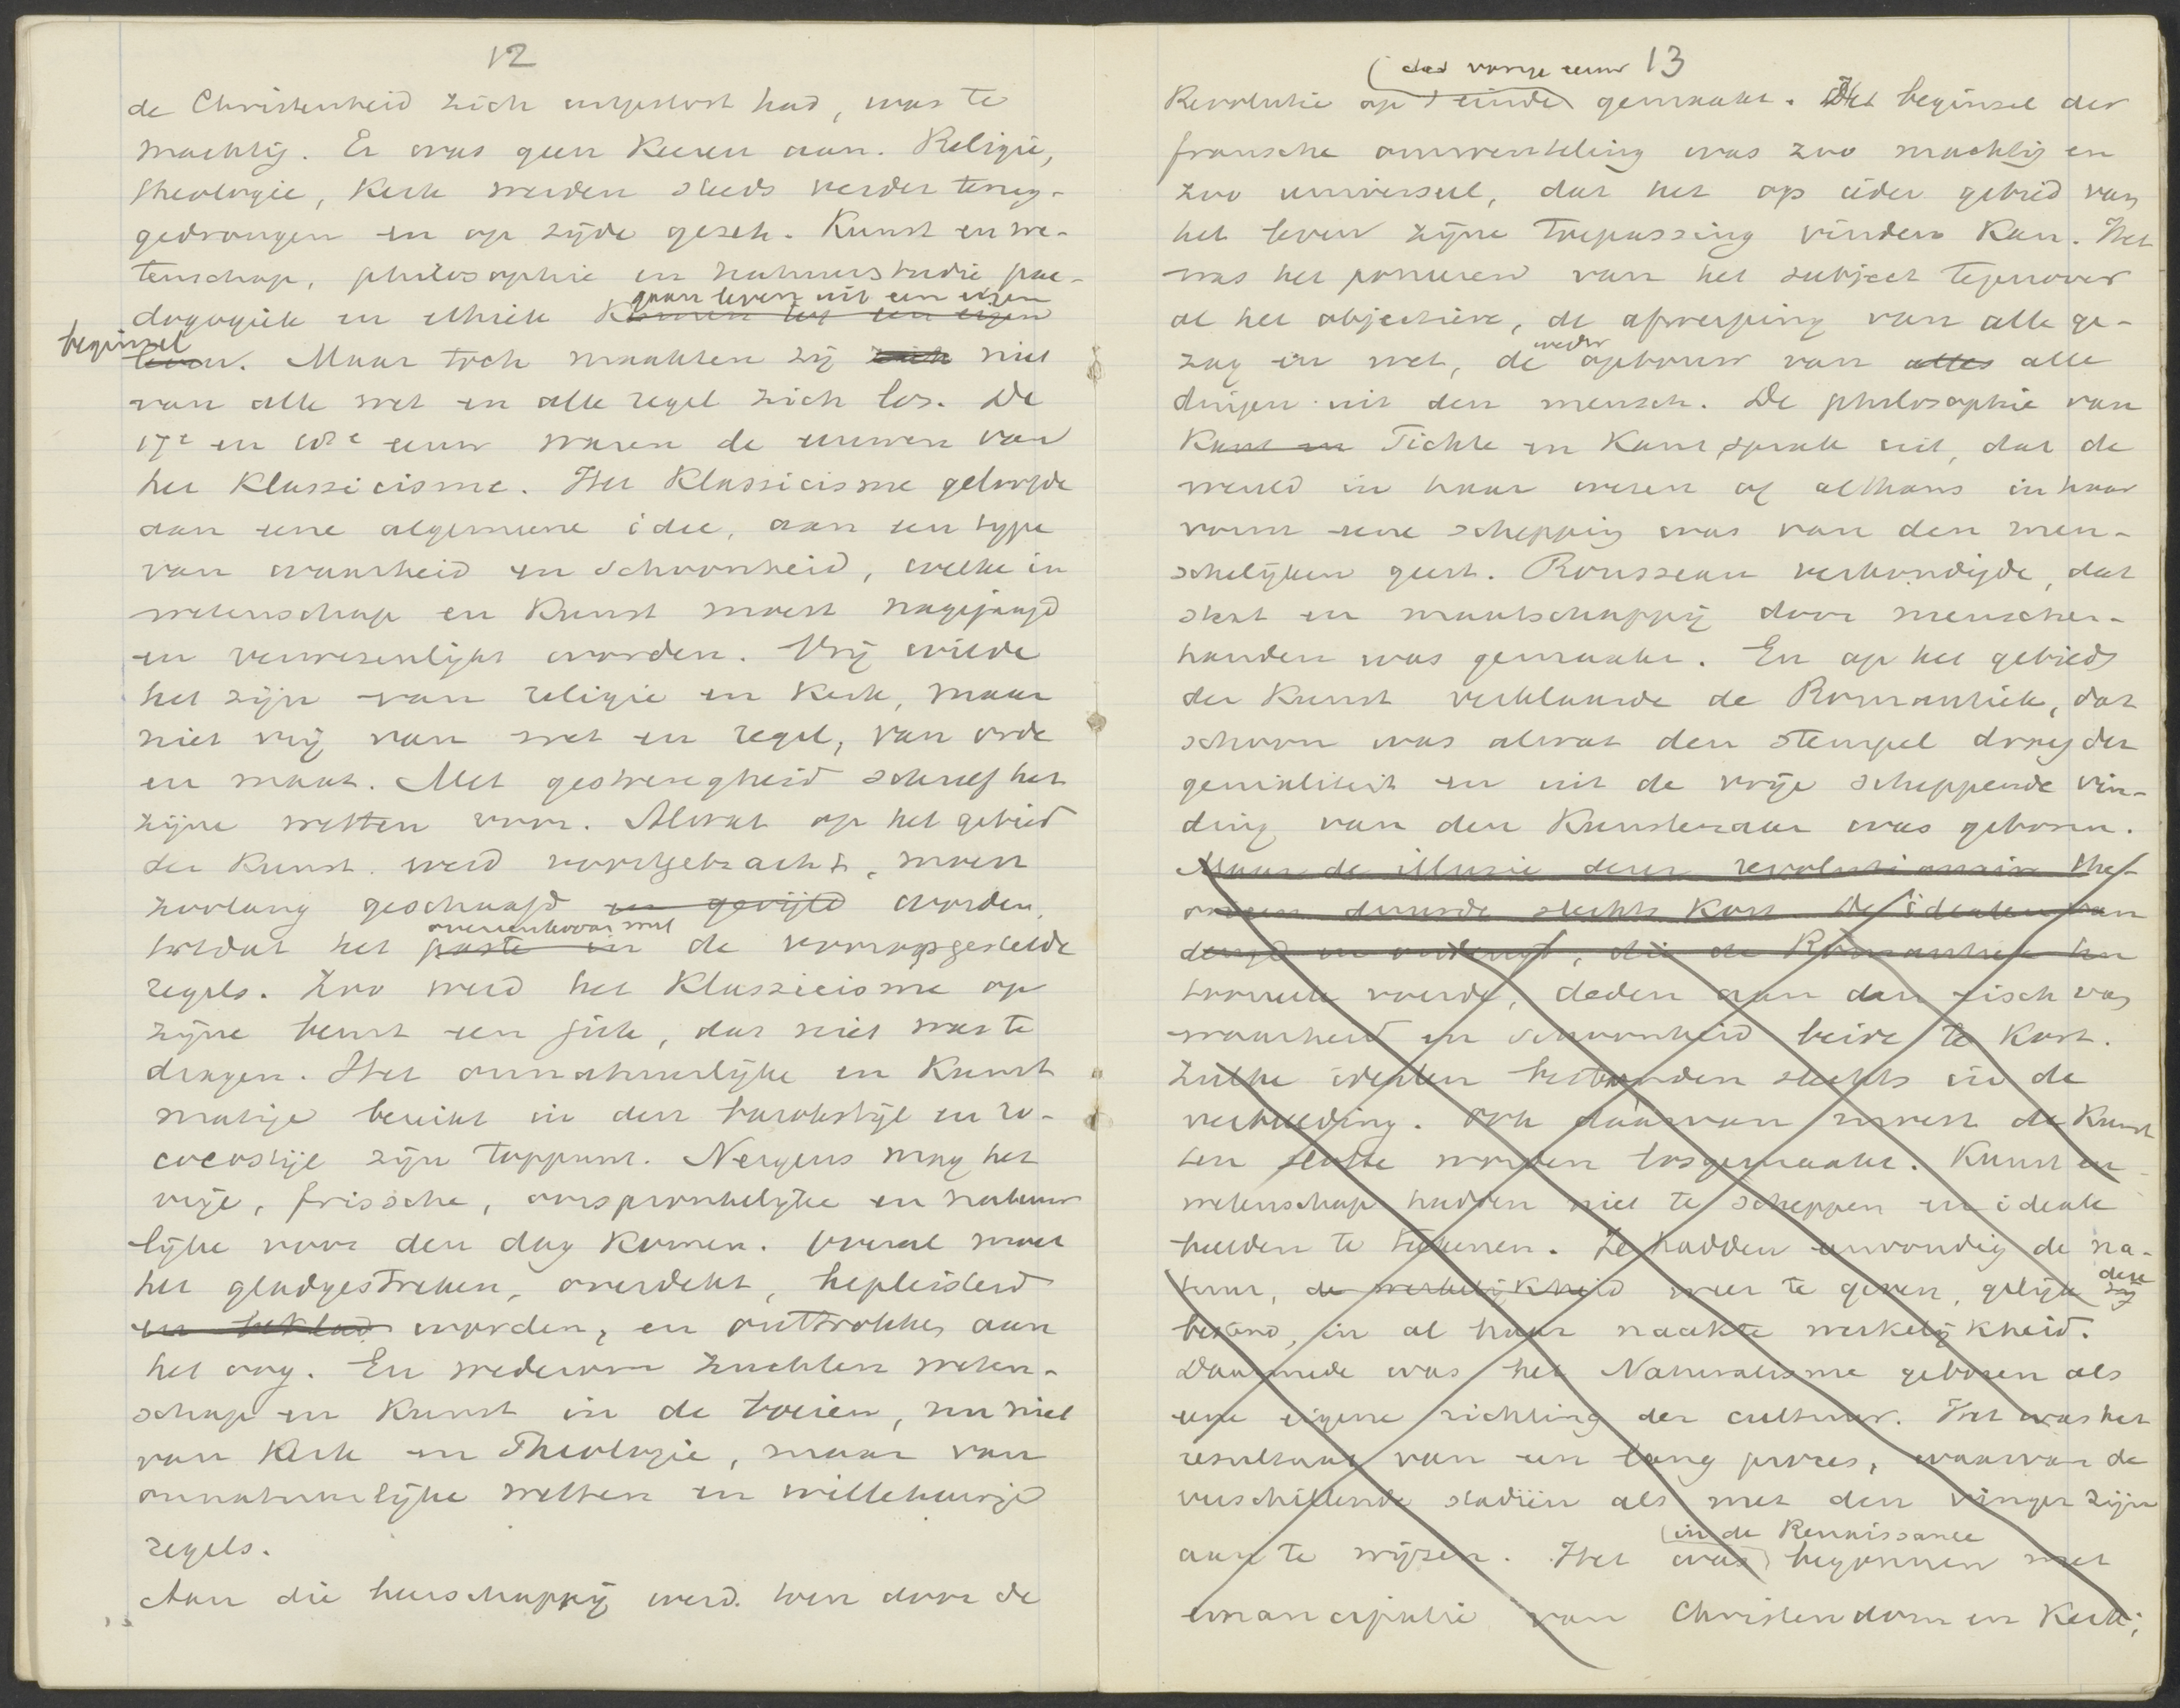 12
de Christenheid zich uitgestort had, was te
machtig. Er was geen keeren aan. Religie,
theologie, kerk werden steeds verder terug-
gedrongen en op zijde gezet. Kunst en we-
tenschap, philosophie en natuurstudie, pae-
gaan leven uit een eigen
dagogiek en ethiek komen tot een eigen
beginsel
leven. Maar toch maakten zij zich niet
van alle wet en alle regel zich los. De
17e en 18e eeuw waren de eeuwen van
het Klassicisme. Het Klassicisme geloofde
aan eene algemeene idee, aan een type
van waarheid en schoonheid, welke in
wetenschap en kunst moest nagejaagd
en verwezenlijkt worden. Vrij wilde
het zijn van religie en kerk, maar
niet vrij van wet en regel, van orde
en maat. Met gestrengheid schreef het
zijne wetten voor. Alwat op het gebied
der kunst werd voortgebracht, moest
zoolang geschaafd en gevijld worden,
overeenkwam met
totdat het paste in de vooropgestelde
regels. Zoo werd het Klassicisme op
zijne beurt een juk, dat niet was te
dragen. Het onnatuurlijke en kunst
matige bereikt in den barokstijl en ro-
cocostijl zijn toppunt. Nergens mag het
vrije, frissche, oorspronkelijke en natuur
lijke voor den dag komen. Overal moet
het gladgestreken, overdekt, bepleisterd
en beklad worden, en onttrokken aan
het oog. En wederom zuchtten weten-
schap en kunst in de boeien, nu niet
van kerk en Theologie, maar van
onnatuurlijke wetten en willekeurige
regels.
Aan die heerschappij werd toen door de
13
der vorige eeuw
Revolutie op 't einde gemaakt. Het beginsel der
fransche omwenteling was zoo machtig en
zoo universeel, dat het op ieder gebied van
het leven zijne toepassing vinden kan. Het
was het poneeren van het subject tegenover
al het objectieve, de afwerping van alle ge-
weder
zag en wet, de opbouw van alles alle
dingen uit den mensch. De philosophie van
Kant en Fichte en Kant sprak uit, dat de
wereld in haar wezen of althans in haar
vorm eene schepping was van den men-
schelijken geest. Rousseau verkondigde, dat
staat en maatschappij door menschen-
handen was gemaakt. En op het gebied
der kunst verklaarde de Romantiek, dat
schoon was alwat den stempel droeg der
genialiteit en uit de vrije scheppende vin-
ding van den kunstenaar was geboren.
Maar de illusie dezer revolutionaire the-
orieen duurde slechts kort. De idealen van
deugd en ondeugd, die de Romantiek ten
tooneele voerde, deden aan den eisch van
waarheid en schoonheid beide te kort.
Zulke idealen bestonden slechts in de
verbeelding. Ook daarvan moest de kunst
ten slotte worden losgemaakt. Kunst en
wetenschap hadden niet te scheppen en ideale
beelden te teekenen. Ze hadden eenvoudig de na-
deze
tuur, de werkelijkheid weer te geven, gelijk zij
bestond, in al haar naakte werkelijkheid.
Daarmede was het Naturalisme geboren als
eene eigene richting der cultuur. Het was het
resultaat van een lang proces, waarvan de
verschillende stadiën als met den vinger zijn
in de Renaissance
aan te wijzen. Het was begonnen met
emancipatie van Christendom en Kerk;